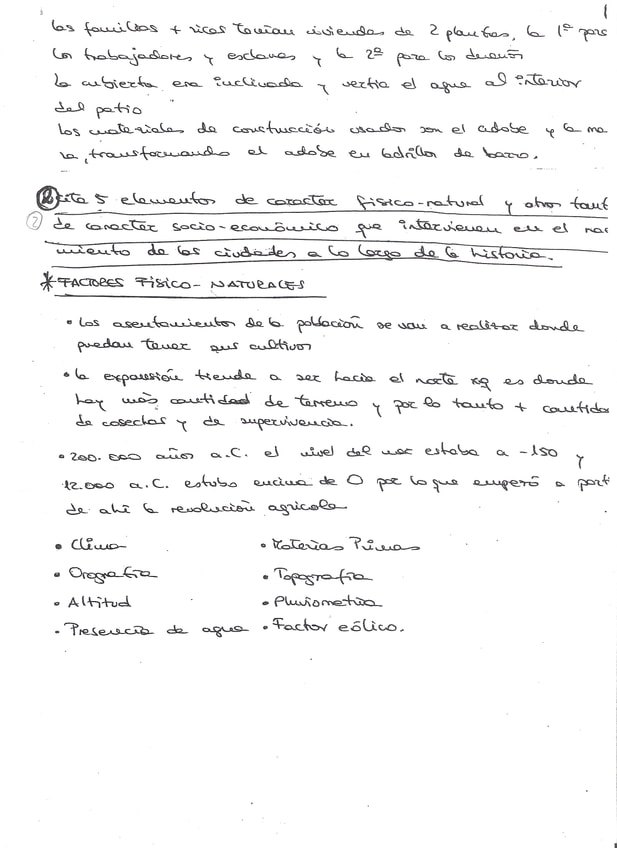 las familias + ricas tenían viviendas de 2 plantas, la 1ª para
los trabajadores y esclavos y la 2ª para los dueños
la cubierta era inclinada y vertia el agua al interior
del patio
los materiales de construcción usados son el adobe y la ma
ra, transformando el adobe en ladrillos de barro.
② Cita 5 elementos de caracter fisico-natural y otros tant
de caracter socio-económico que intervienen en el nac
imiento de las ciudades a lo largo de la historia.
* FACTORES FÍSICO-NATURALES
• Los asentamientos de la población se van a realizar donde
puedan tener sus cultivos
• la expansión tiende a ser hacia el norte xq es donde
hay más cantidad de terreno y por lo tanto + cantidad
de cosechas y de supervivencia.
• 200.000 años a.C. el nivel del mar estaba a -150 y
12.000 a.C. estubo encima de 0 por lo que empezó a parti
de ahí la revolución agricola
• Clima • Materias Primas
• Orografía • Topografía
• Altitud • Pluviometria
• Presencia de agua • Factor eólico.